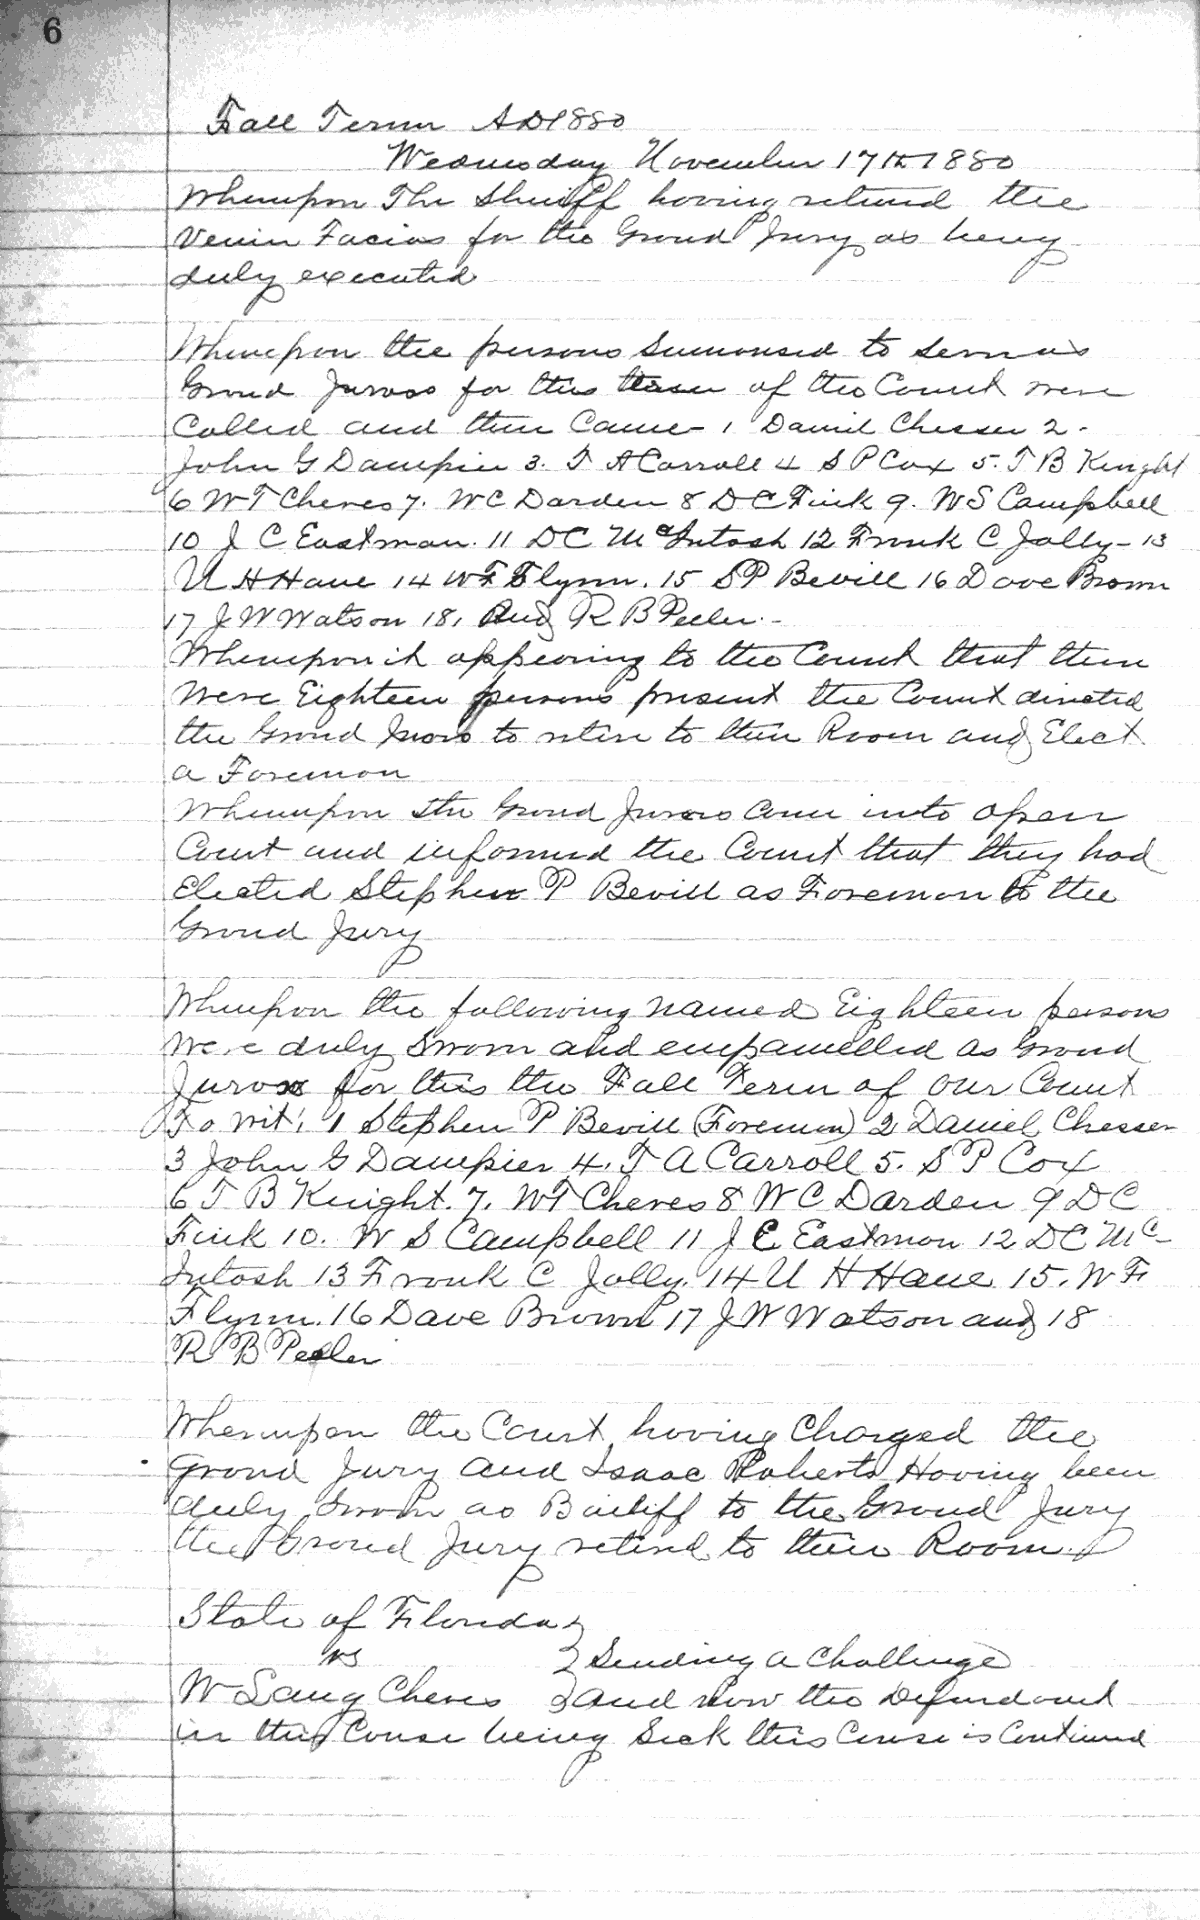 6
Fall Term AD1880
Wednesday November 17th 1880
Whereupon The Sheriff having returned the
Venire Facias for the Grand Jury as being
duly executed
Whereupon the persons Summonsed to serve as
Grand Jurors for this term of the Court were
Called and then Came 1 Daniel Chesser 2.
John G Dampier 3. T A Carroll 4 S P Cox 5. T B Knight
6 W T Cheves 7. W C Darden 8 D C Fink 9. W S Campbell
10 J C Eastman. 11 D C McIntosh 12 Frank C Jolly - 13
U H Hane 14 W F Flynn. 15 S P Bevill 16 Dave Brown
17 J W Watson 18, And R B Peeler. -
Whereupon it appearing to the Court that there
Were Eighteen persons present the Court directed
the Grand Jurors to retire to their Room and Elect
a Foreman
Whereupon the Grand Jurors Came into open
Court and informed the Court that they had
Elected Stephen P Bevill as Foreman to the
Grand Jury
Whereupon the following named Eighteen persons
Were duly Sworn and empanelled as Grand
Jurors for this the Fall Term of our Court
To Wit; 1 Stephen P Bevill (Foreman) 2 Daniel Chesser
3 John G Dampier 4. T A Carroll 5. S P Cox
6 T B Knight. 7. W T Cheves 8 W C Darden 9 D C
Fink 10. W S Campbell 11 J C Eastman 12 D C Mc-
Intosh 13 Frank C Jolly. 14 U H Hane 15. W F
Flynn. 16 Dave Brown 17 J W Watson and 18
R B Peeler
Whereupon the Court having Charged the
Grand Jury and Isaac Roberts Having been
duly Sworn as Bailiff to the Grand Jury
the Grand Jury retired to their Room.
State of Florida
vs } Sending a Challenge
W Lang Cheves } and now the Defendant
in this Cause being Sick this Cause is Continued